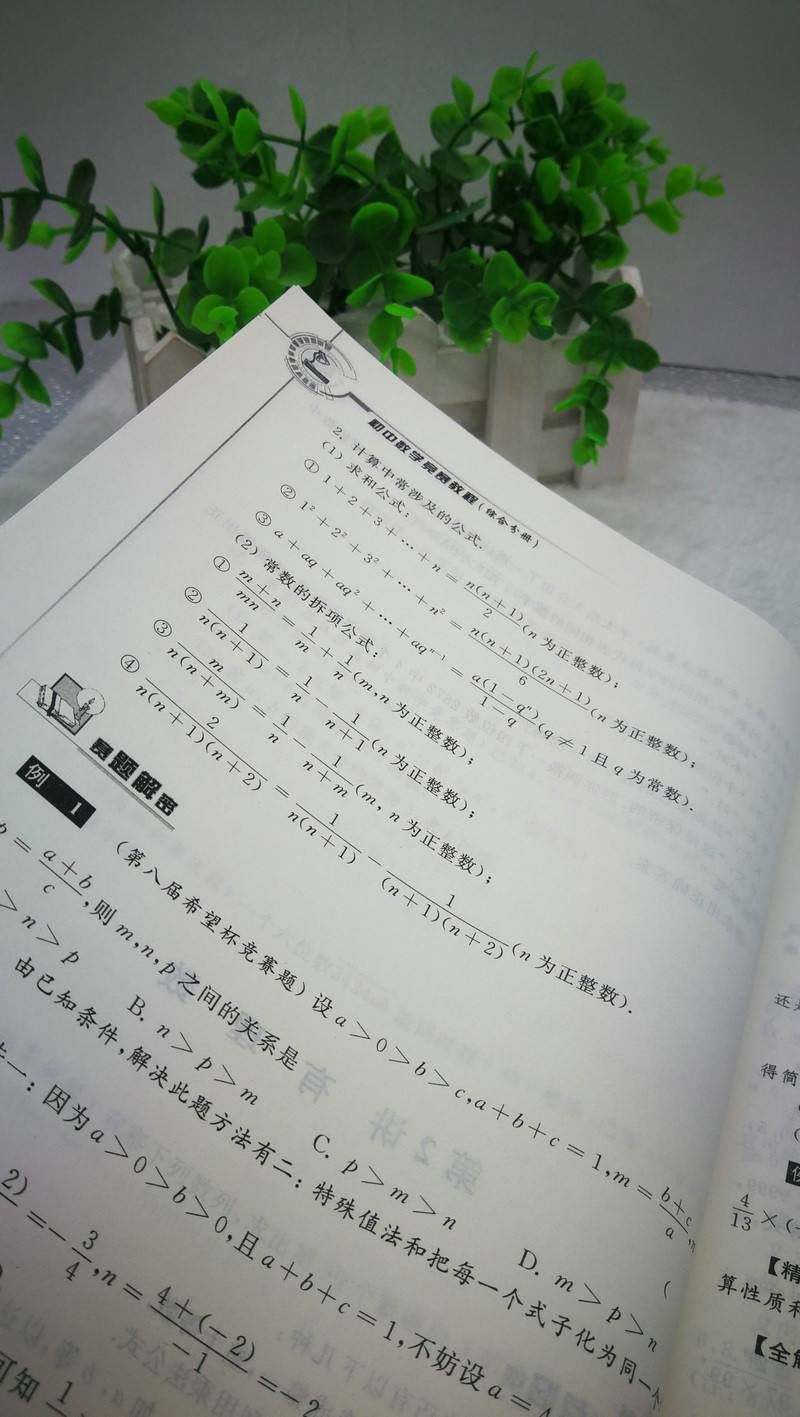 初中数学竞赛教程(综合分册)
2. 计算中常涉及的公式.
(1) 求和公式:
① 1+2+3+…+n=n(n+1)/2(n为正整数);
② 1²+2²+3²+…+n²=n(n+1)(2n+1)/6(n为正整数);
③ a+aq+aq²+…+aqⁿ⁻¹=a(1-qⁿ)/1-q(q≠1且q为常数).
(2) 常数的拆项公式:
① m+n/mn=1/m+1/n(m,n为正整数);
② 1/n(n+1)=1/n-1/n+1(n为正整数);
③ m/n(n+m)=1/n-1/n+m(m,n为正整数);
④ 2/n(n+1)(n+2)=1/n(n+1)-1/(n+1)(n+2)(n为正整数).
竞题解密
例 1
(第八届希望杯竞赛题)设a>0>b>c,a+b+c=1,m=b+c/a,
=a+b/c,则m,n,p之间的关系是 (
>n>p B. n>p>m C. p>m>n D. m>p>n
由已知条件,解决此题方法有二:特殊值法和把每一个式子化为同一
一:因为a>0>b>0,且a+b+c=1,不妨设a=4
2)/=-3/4,n=4+(-2)/-1=-2
可知 1
第2讲 有
还
得简
(
4/13×(-
【精
算性质和
【全解